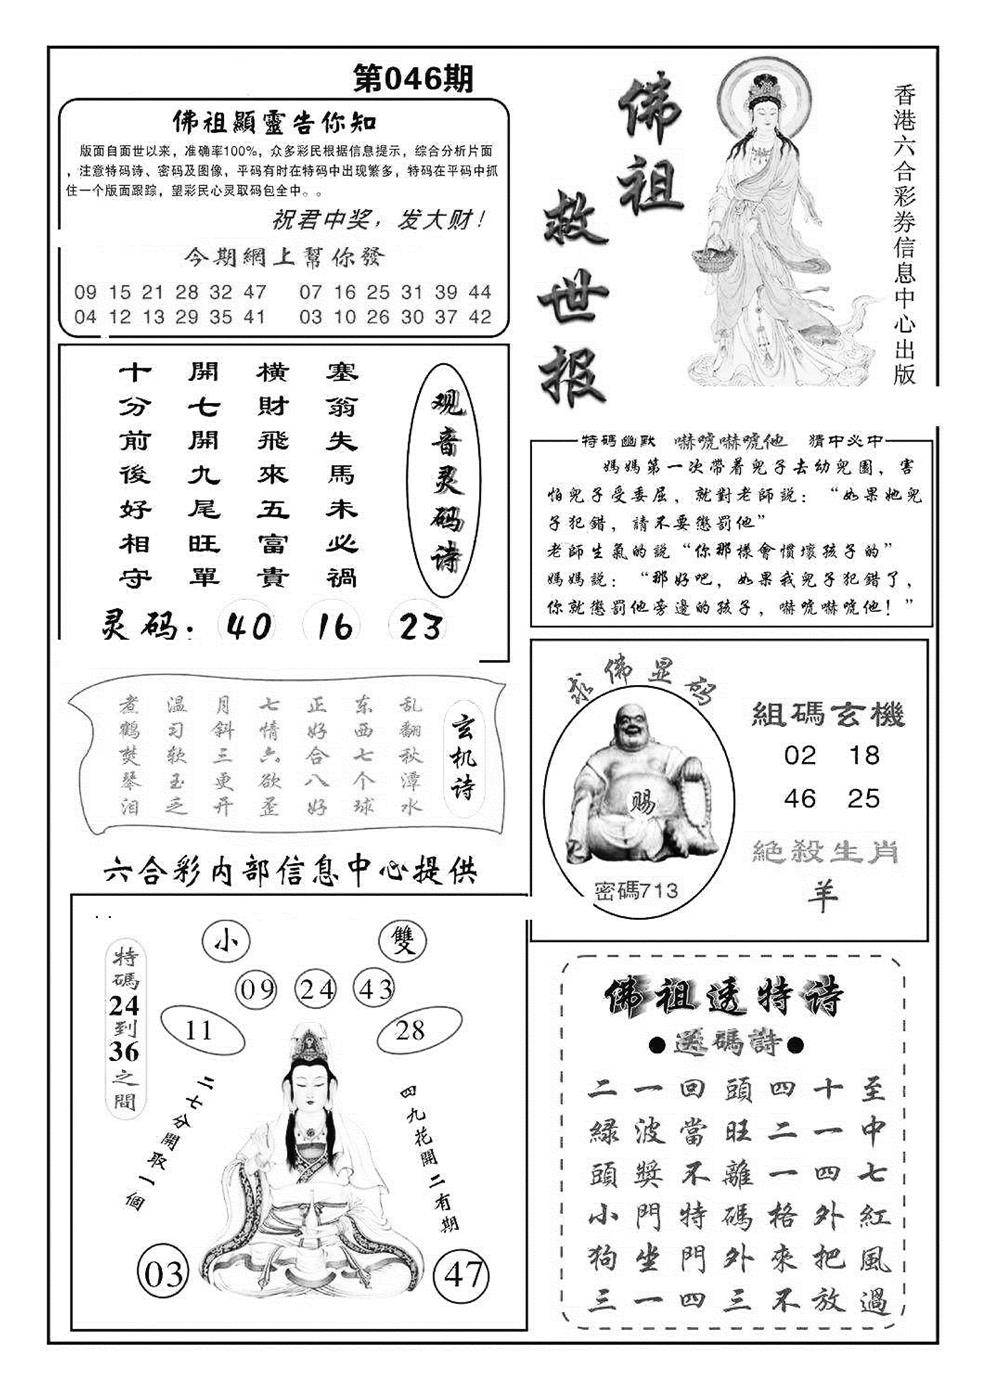 第046期
佛祖顯靈告你知
版面自面世以来，准确率100%，众多彩民根据信息提示，综合分析片面
，注意特码诗、密码及图像，平码有时在特码中出现繁多，特码在平码中抓
住一个版面跟踪，望彩民心灵取码包全中。。
祝君中奖，发大财！
今期網上幫你發
09 15 21 28 32 47 07 16 25 31 39 44
04 12 13 29 35 41 03 10 26 30 37 42
佛祖
救世报
香港六合彩券信息中心出版
观音灵码诗
塞翁失馬未必禍
橫財飛來五富貴
開七開九尾旺單
十分前後好相守
灵码：40 16 23
特碼幽默 嚇唬嚇唬他 猜中必中
媽媽第一次帶着兒子去幼兒園，害
怕兒子受委屈，就對老師説：“如果她兒
子犯錯，請不要懲罰他”
老師生氣的説“你那樣會慣壞孩子的”
媽媽説：“那好吧，如果我兒子犯錯了，
你就懲罰他旁邊的孩子，嚇唬嚇唬他！”
玄机诗
乱翻秋潭水
东西七个球
正好合八好
七情六欲歪
月斜三更开
温习软玉乏
煮鹤焚琴泪
六合彩内部信息中心提供
求佛显码
赐
密碼713
組碼玄機
02 18
46 25
絕殺生肖
羊
特碼24到36之間
小
雙
09 24 43
11
28
二七分開取一個
四九花開二有期
03
47
佛祖透特诗
●送碼詩●
二一回頭四十至
緑波當旺二一中
頭獎不離一四七
小門特碼格外紅
狗坐門外來把風
三一四三不放過